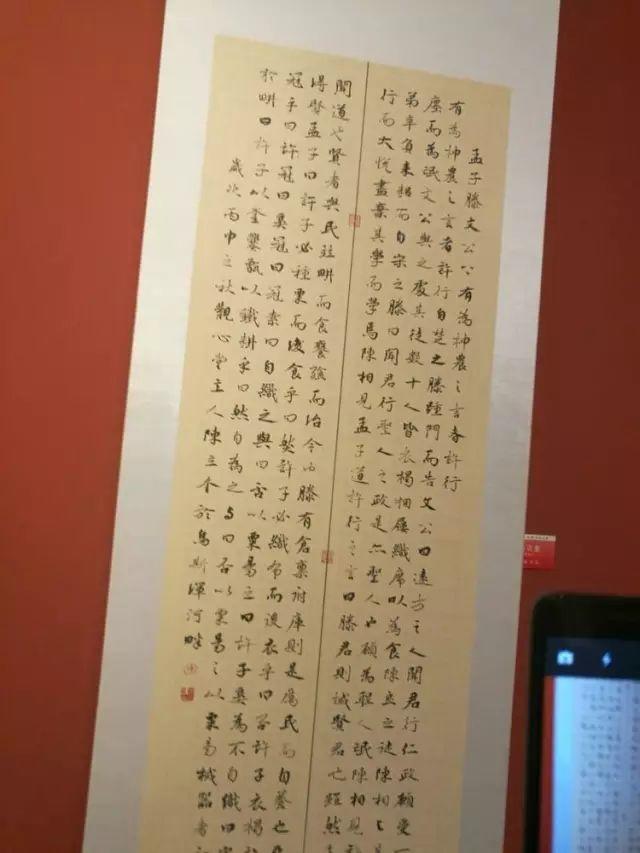 孟子滕文公公有為神農之言者許行
有為神農之言者許行自楚之滕踵門而告文公曰遠方之人聞君行仁政願受一
廛而為氓文公與之處其徒數十人皆衣褐捆屨織席以為食陳良之徒陳相
弟辛負耒耜而自宋之滕曰聞君行聖人之政是亦聖人也願為聖人氓陳相見
行而大悅盡棄其學而學焉陳相見孟子道許行之言曰滕君則誠賢君也雖然
聞道也賢者與民並耕而食饔飧而治今也滕有倉廩府庫則是厲民而自養也
得賢孟子曰許子必種粟而後食乎曰然許子必織布而後衣乎曰否許子衣褐
冠乎曰許冠曰奚冠曰冠素曰自織之與曰否以粟易之曰許子奚為不自織曰
於耕曰許子以釜甑爨以鐵耕乎曰然自為之與曰否以粟易之以粟易械器者
歲次丙申之秋觀心堂主人陳立 於烏斯渾河畔